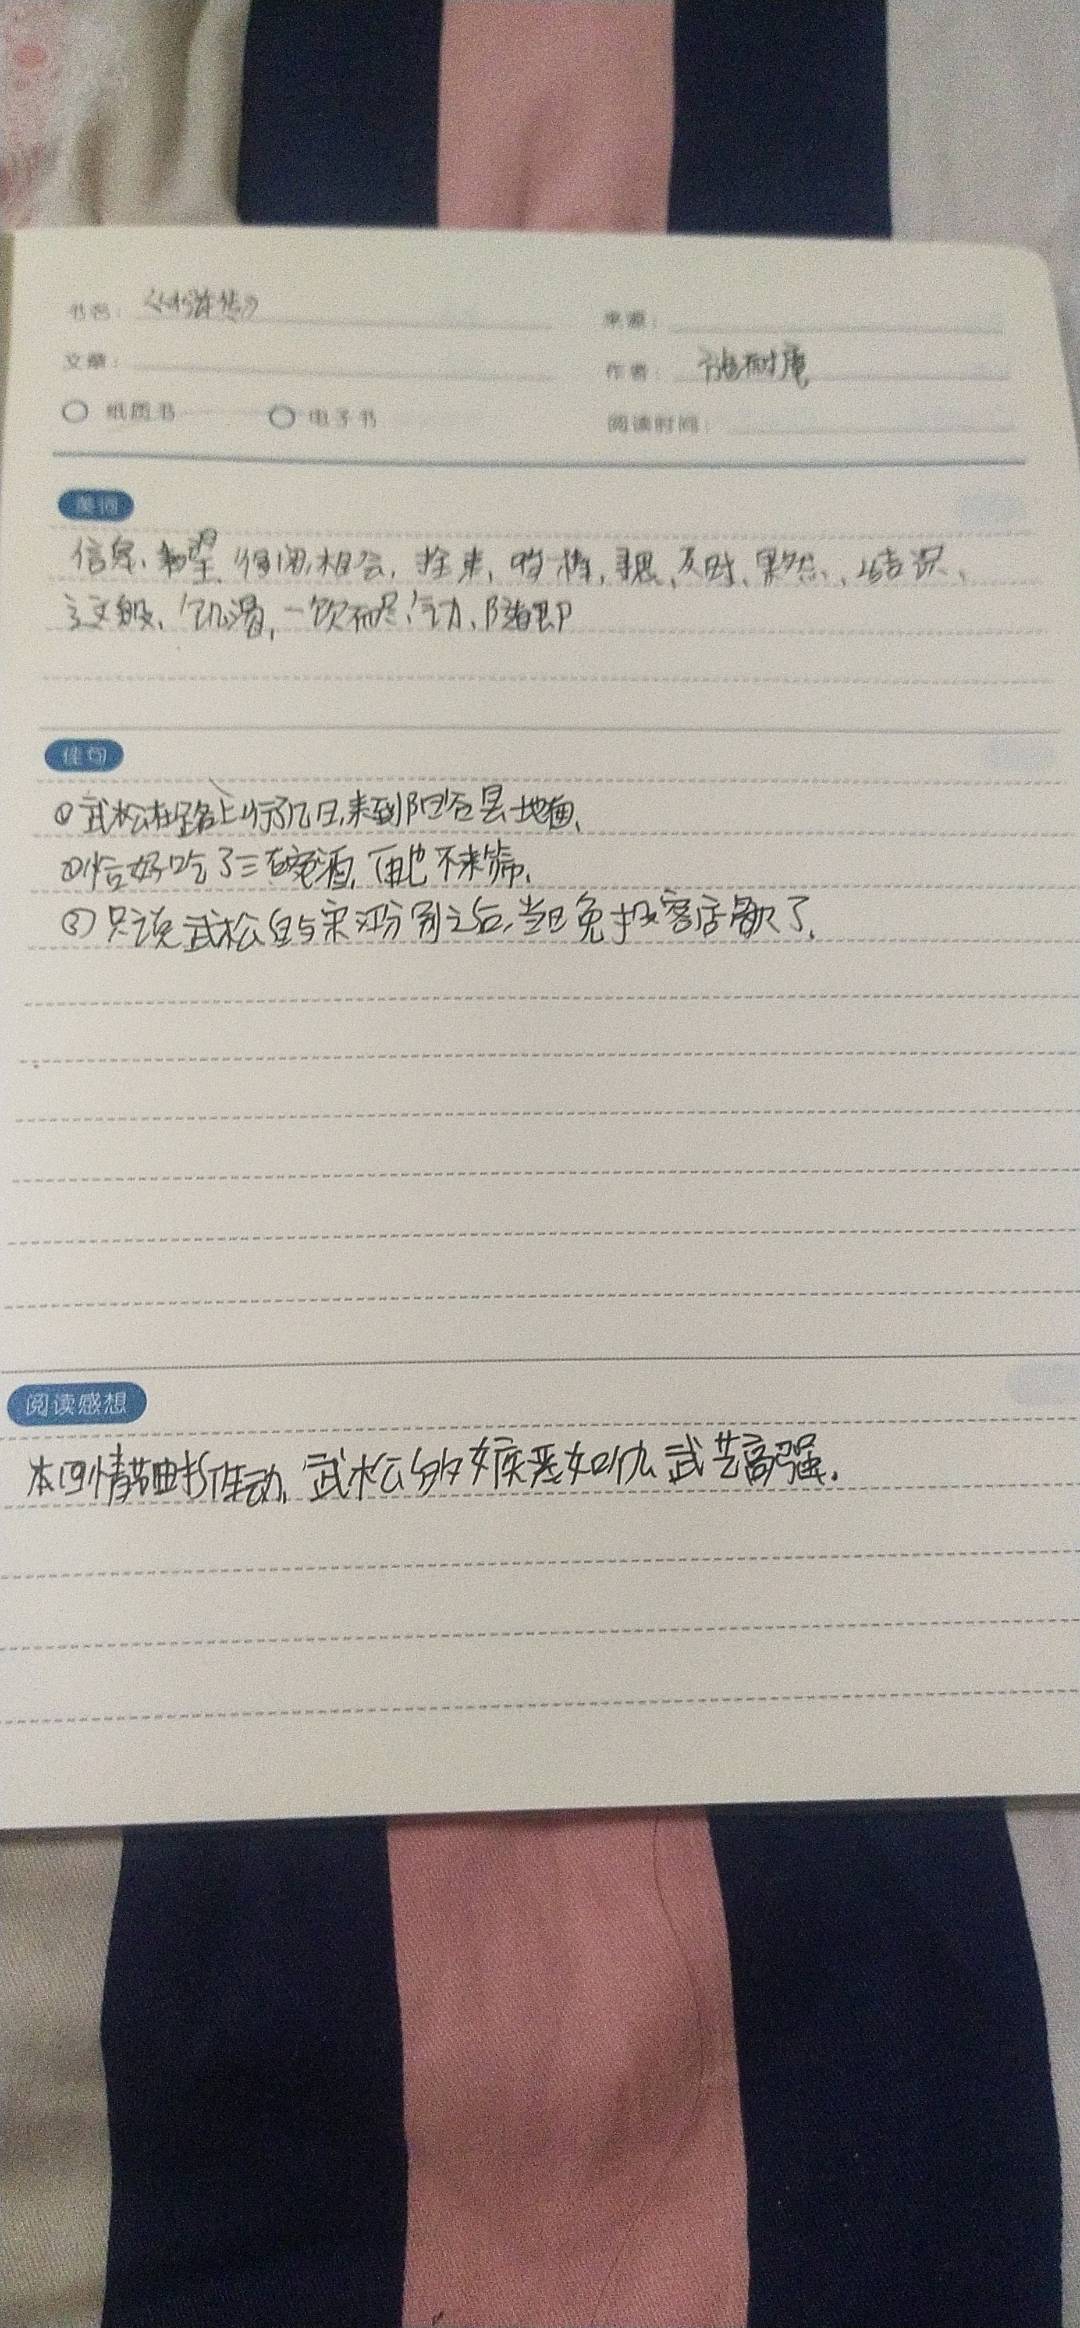 书名： 《水浒传》
来源：
文章：
作者： 施耐庵
纸质书 电子书
阅读时间：
美词
信步、 得闻,相会, 拴束, 哨棒, 寻思、及时、果然、、结识、
这般、饥渴,一饮而尽、气力、随即
佳句
①武松在路上行了几日,来到阳谷县地面、
②恰好吃了三碗酒,再也不来筛、
③只说武松自与宋江分别之后,当日晚投客店歇了、
阅读感想
本回情节曲折生动,武松的嫉恶如仇,武艺高强.